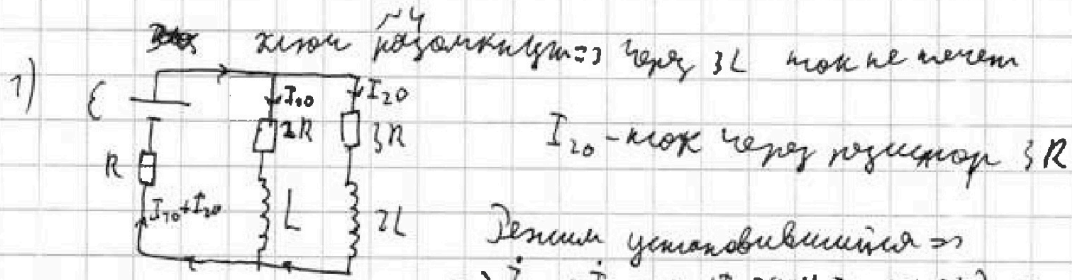 ключ разомкнут => через 3L ток не течет
1) ε I₁₀ I₂₀
2R 3R
R
I₁₀+I₂₀ L 2L
I₂₀ - ток через резистор 3R
Режим установившийся =>